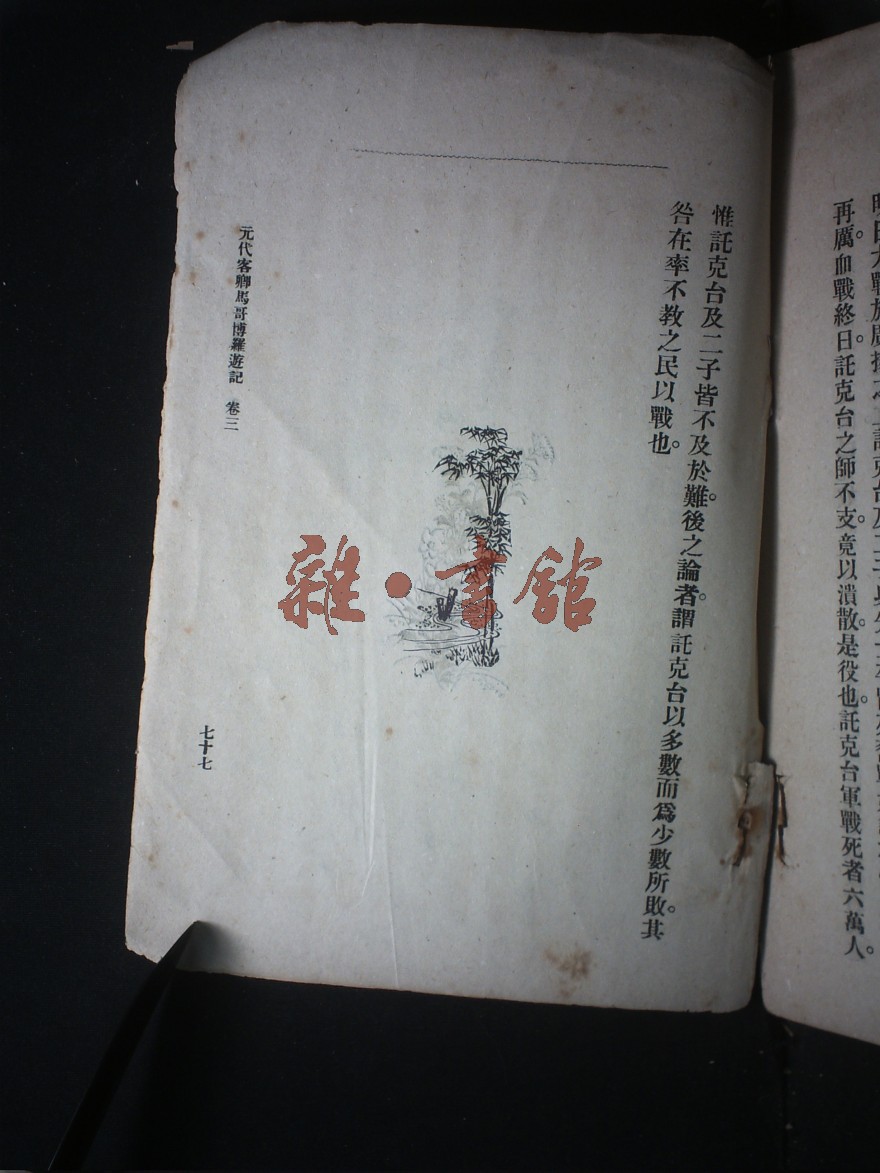 再厲。血戰終日。託克台之師不支。竟以潰散。是役也。託克台軍戰死者六萬人。
惟託克台及二子皆不及於難。後之論者。謂託克台以多數而爲少數所敗。其
咎在率不教之民以戰也。
元代客卿馬哥博羅遊記 卷三
七十七
雜·書館